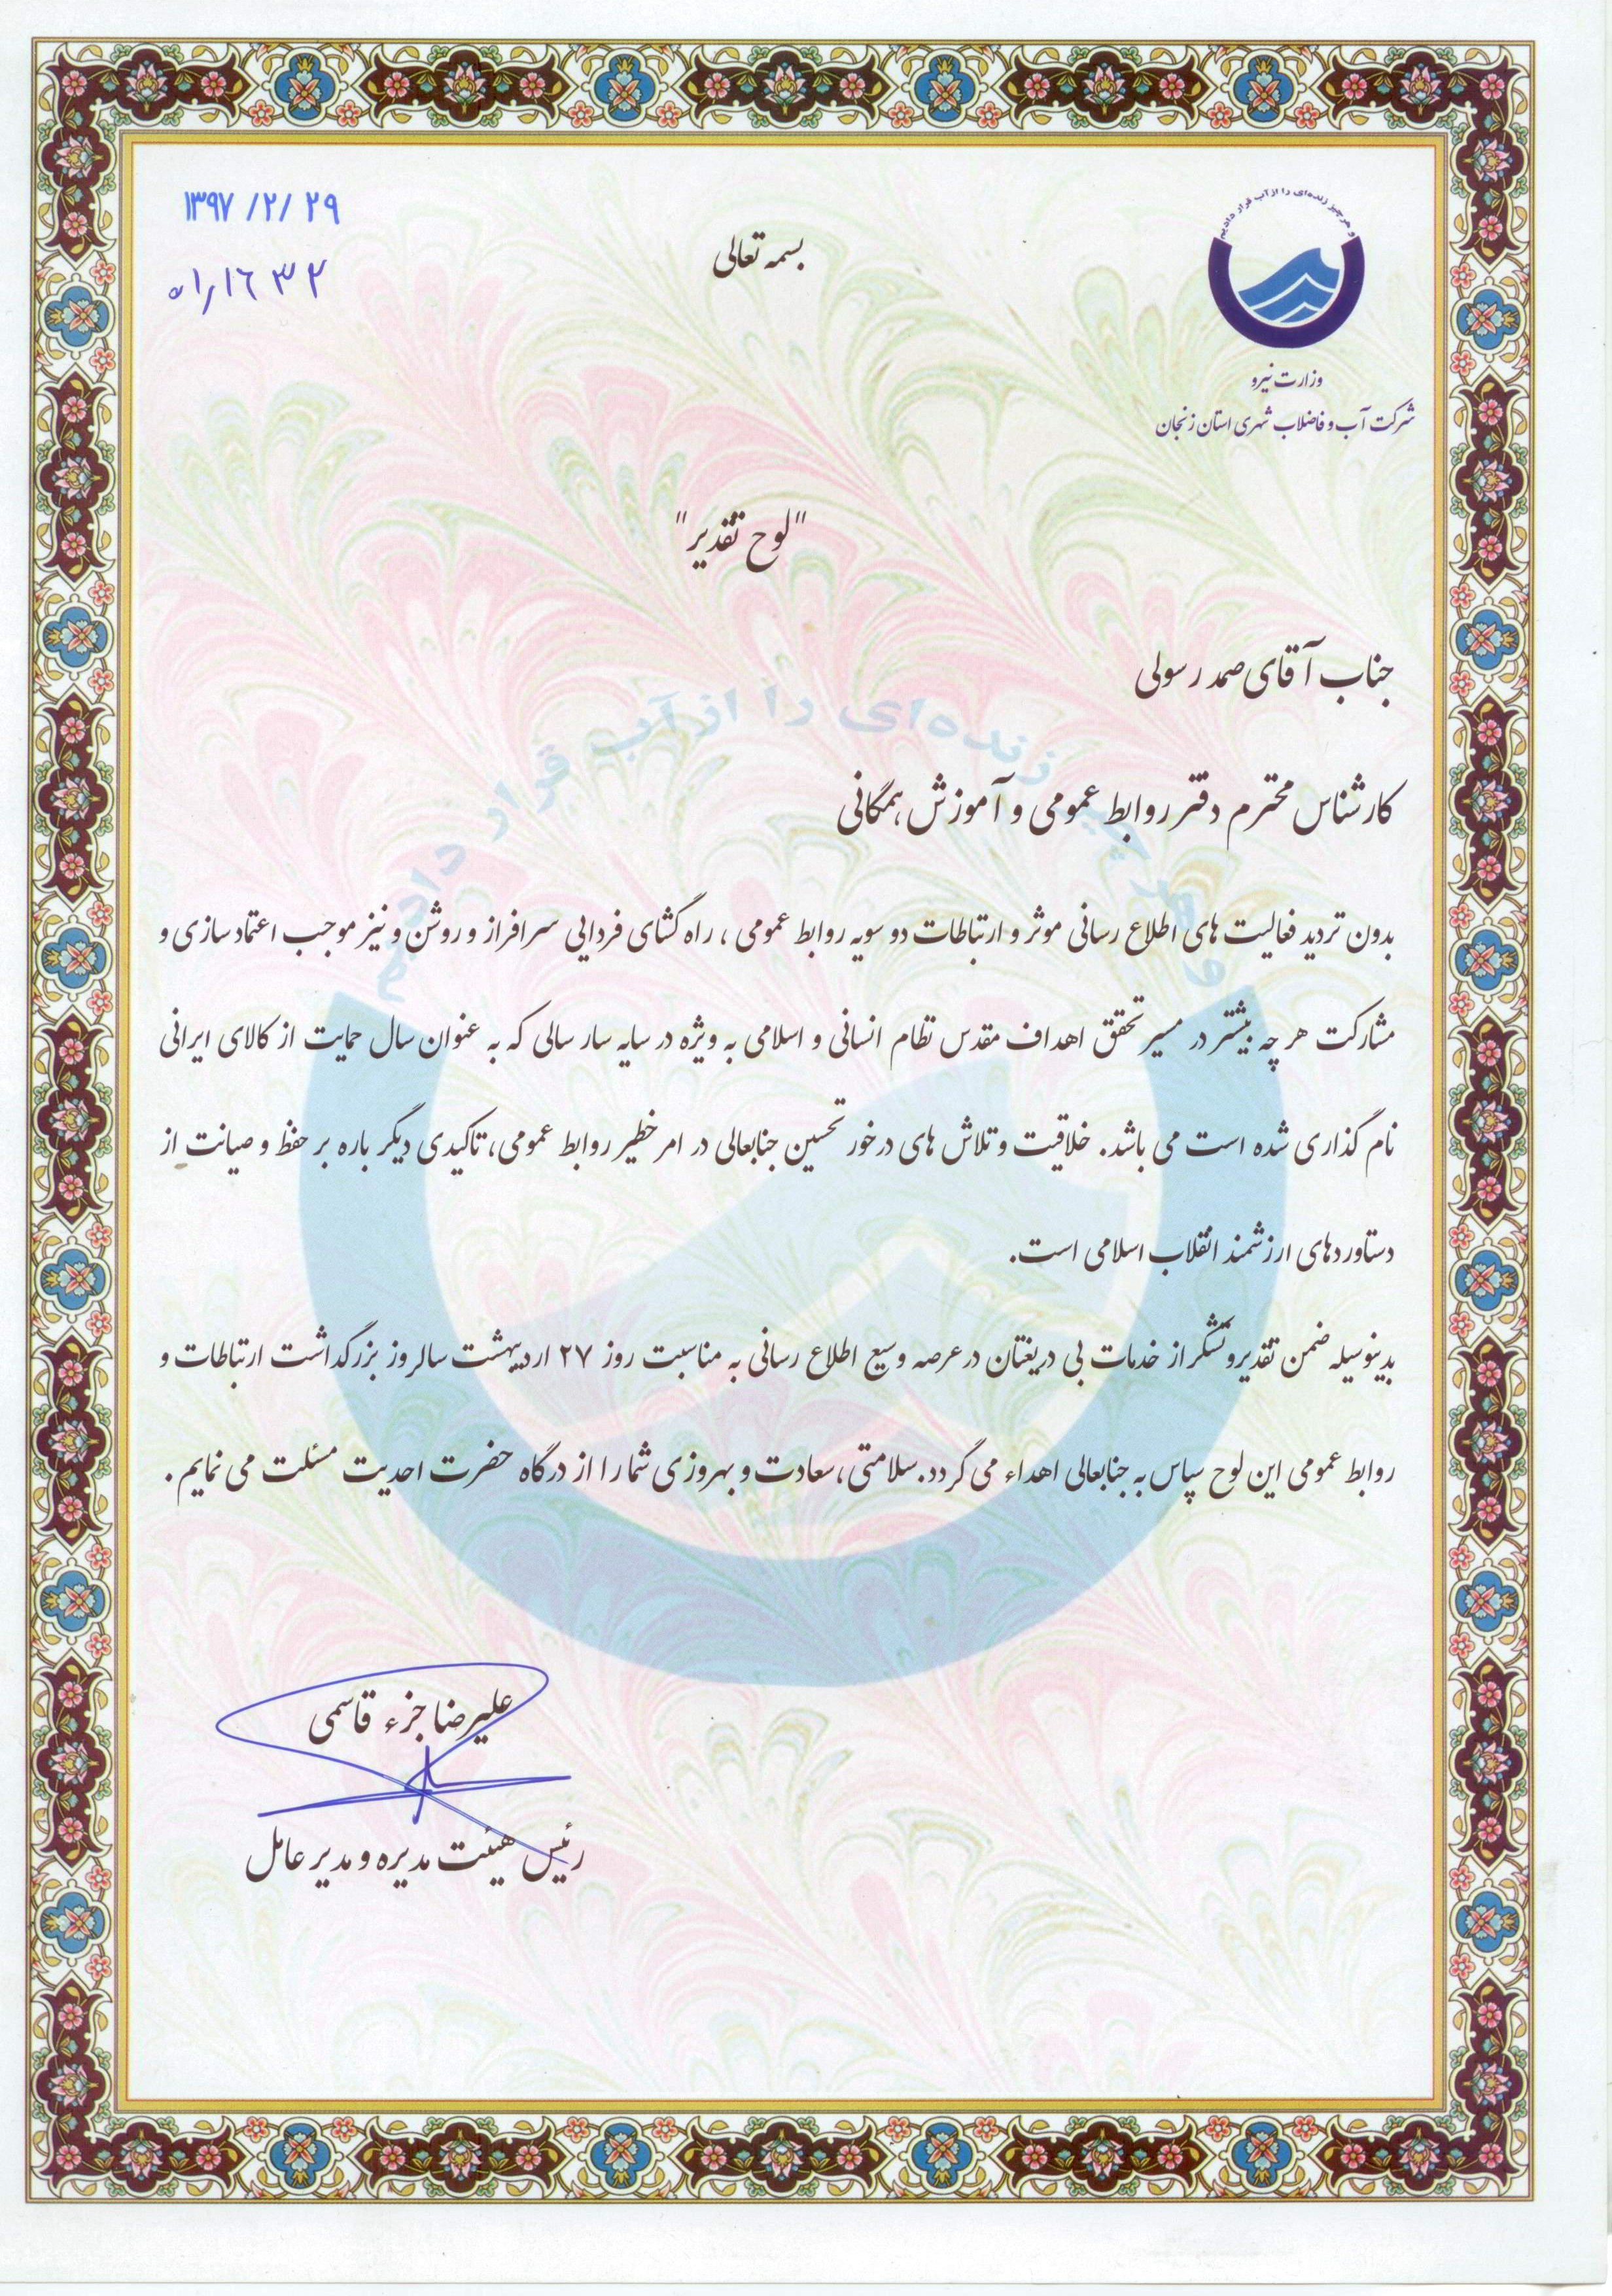 ۱۳۹۷/۲/۲۹
و هر چیز زنده‌ای را از آب قرار دادیم
بسمه تعالی
وزارت نیرو
شرکت آب و فاضلاب شهری استان زنجان
"لوح تقدیر"
جناب آقای صمد رسولی
کارشناس محترم دفتر روابط عمومی و آموزش همگانی
بدون تردید فعالیت های اطلاع رسانی موثر و ارتباطات دو سویه روابط عمومی ، راه گشای فردایی سرافراز و روشن و نیز موجب اعتماد سازی و
مشارکت هر چه بیشتر در مسیر تحقق اهداف مقدس نظام انسانی و اسلامی به ویژه در سایه سار سالی که به عنوان سال حمایت از کالای ایرانی
نام گذاری شده است می باشد. خلاقیت و تلاش های درخور تحسین جنابعالی در امر خطیر روابط عمومی، تاکیدی دیگر باره بر حفظ و صیانت از
دستاوردهای ارزشمند انقلاب اسلامی است.
بدینوسیله ضمن تقدیر و تشکر از خدمات بی دریغتان در عرصه وسیع اطلاع رسانی به مناسبت روز ۲۷ اردیبهشت سالروز بزرگداشت ارتباطات و
روابط عمومی این لوح سپاس به جنابعالی اهداء می گردد. سلامتی، سعادت و بهروزی شما را از درگاه حضرت احدیت مسئلت می نمایم .
علیرضا جزء قاسمی
رئیس هیئت مدیره و مدیر عامل